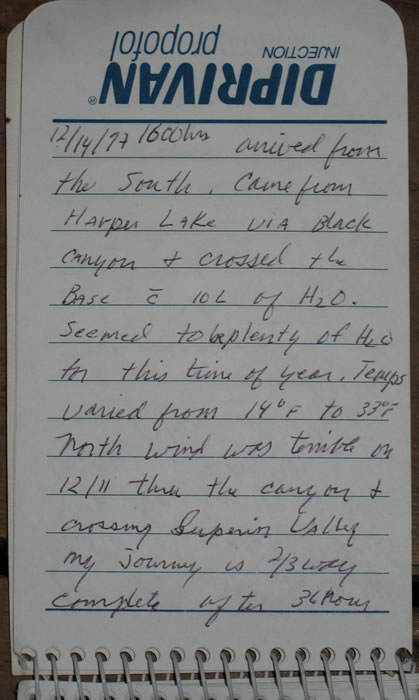 DIPRIVAN®
propofol
INJECTION
12/14/97 1600hrs arrived from
the South. Came from
Harper Lake via Black
Canyon & crossed the
Base c̄ 10L of H2O.
Seemed to be plenty of H2O
for this time of year. Temps
varied from 14°F to 33°F
North wind was terrible on
12/11 thru the canyon &
crossing Superior Valley
my Journey is 2/3 way
complete after